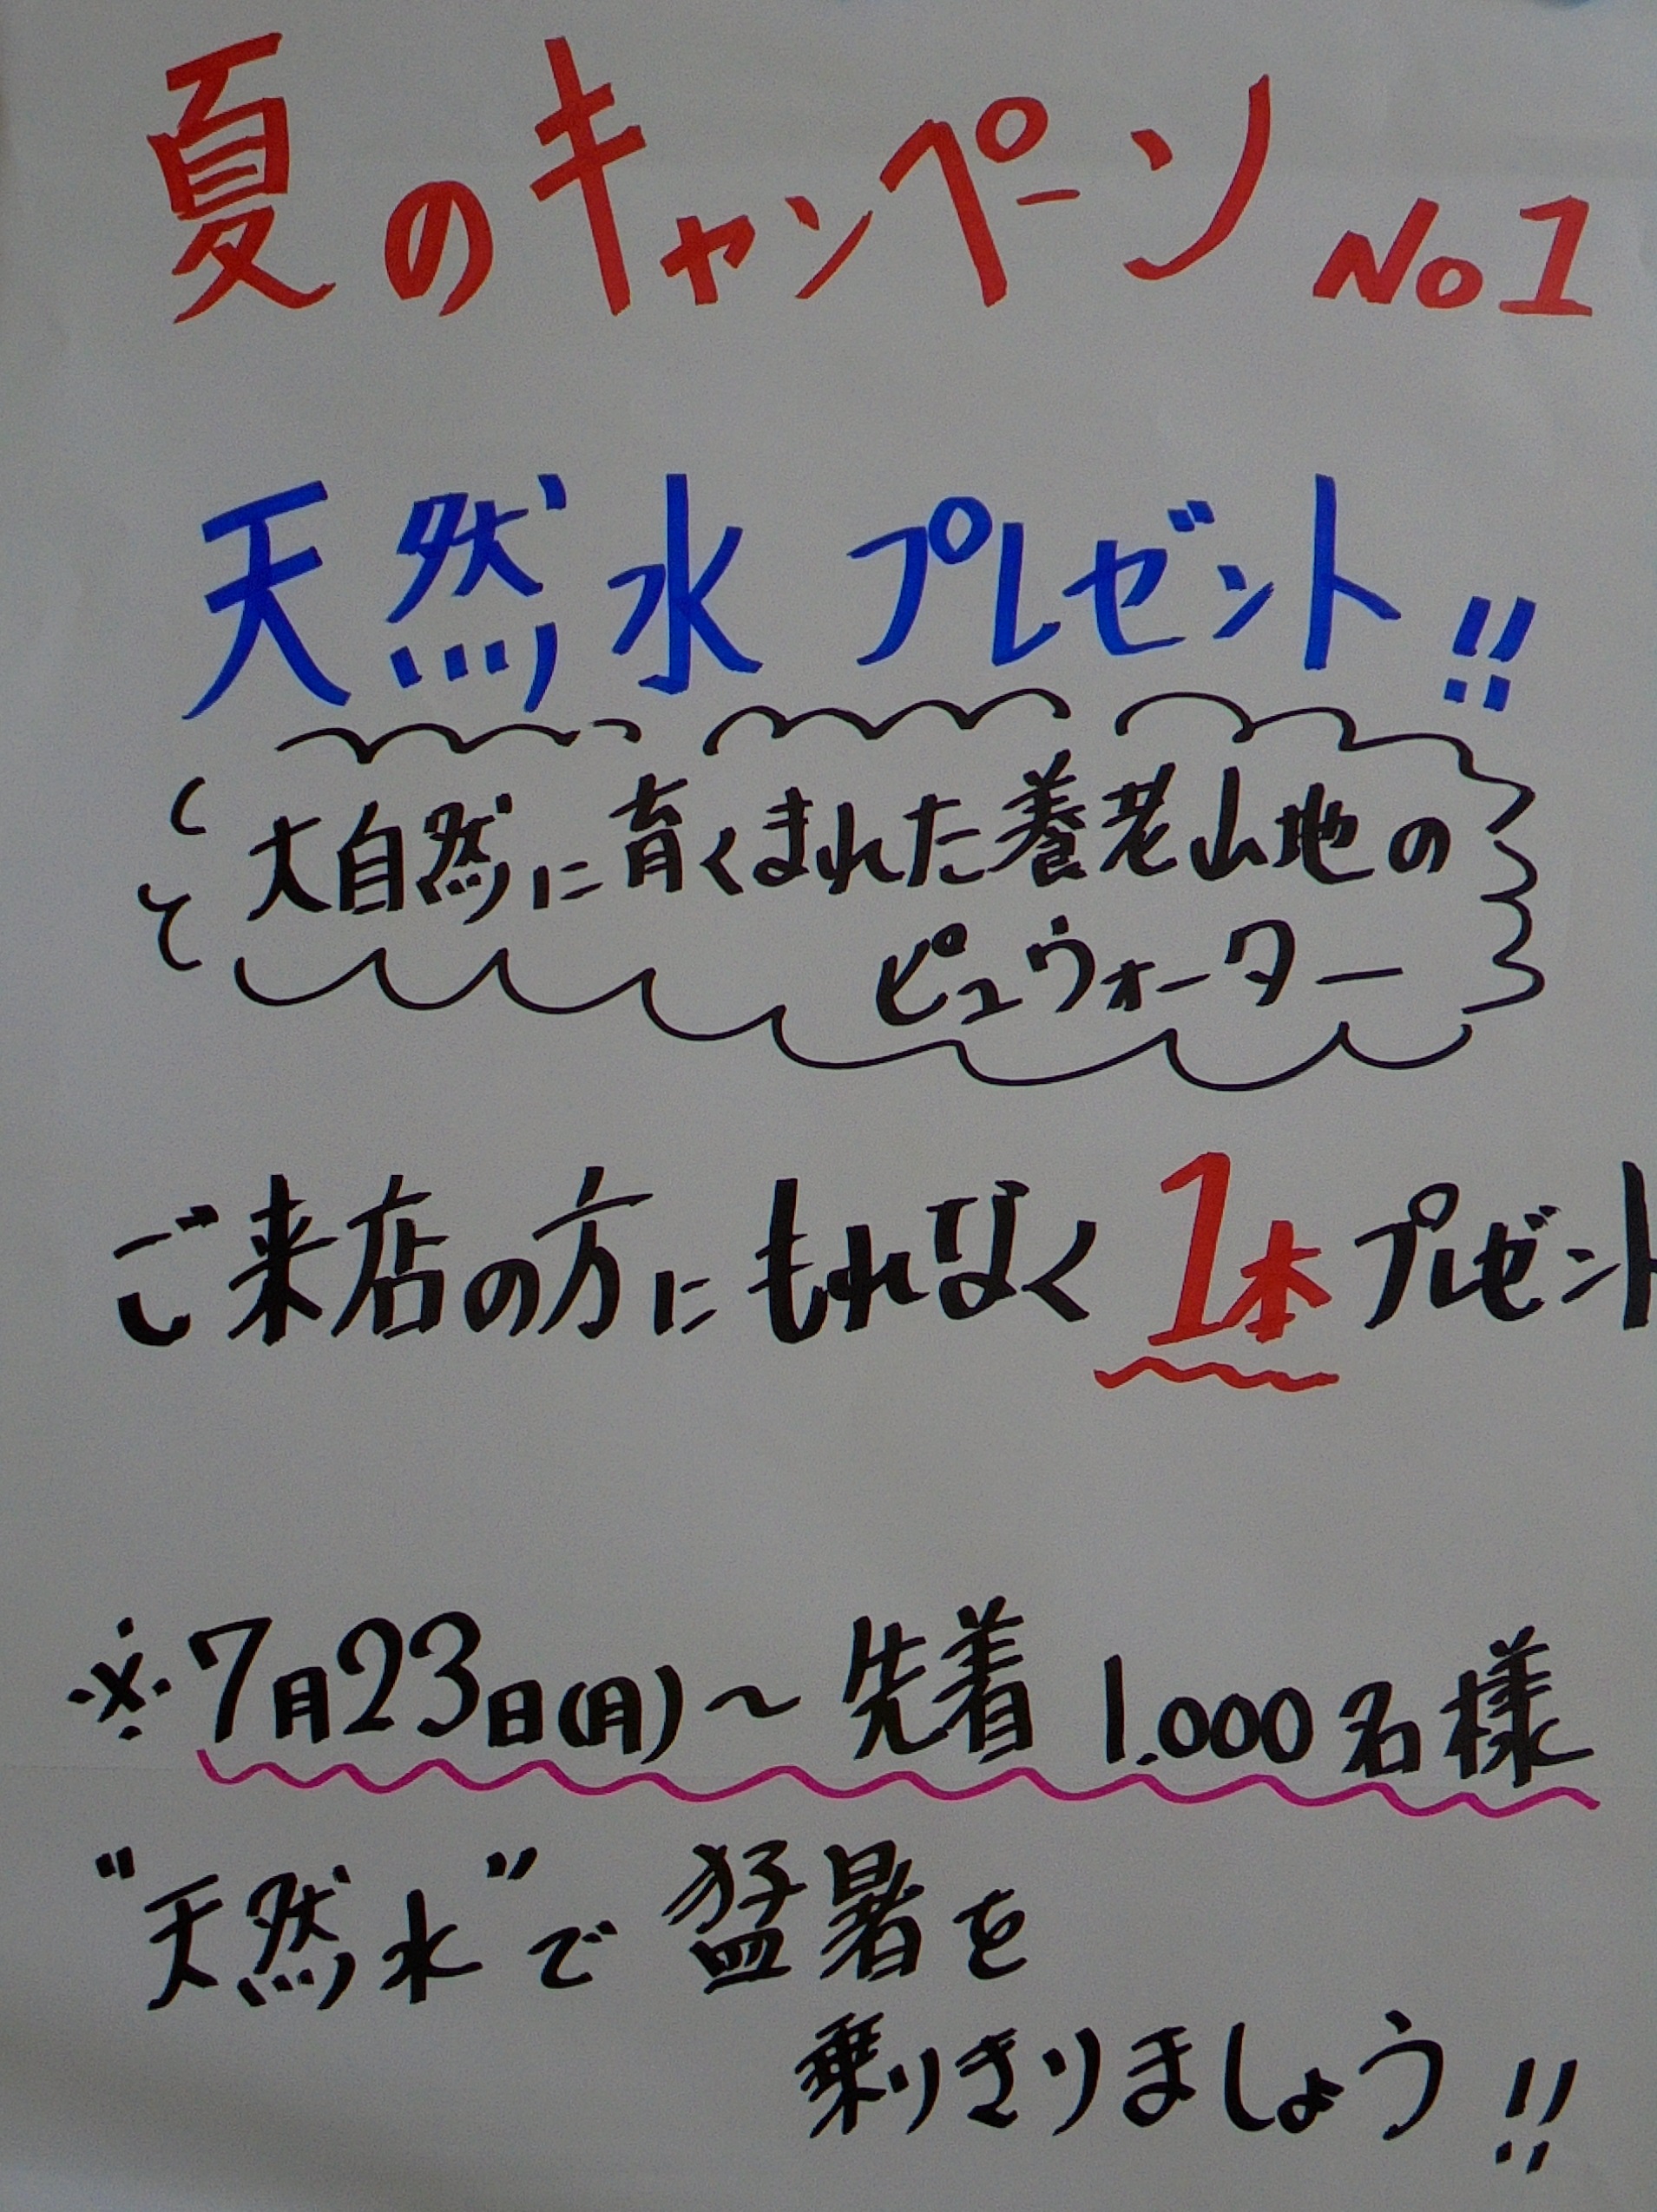 夏のキャンペーン No1
天然水 プレゼント!!
大自然に育くまれた養老山地の
ピュウォーター
ご来店の方にもれなく 1本 プレゼント
※7月23日(月)～先着 1.000名様
"天然水"で猛暑を
乗りきりましょう!!